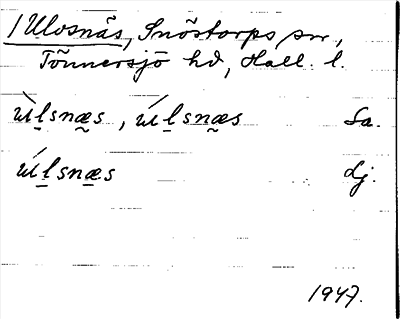 /Ulvsnäs, Snöstorps sn,
Tönnersjö hd, Hall. l.
ùl̠snæ̰s, úl̠snæ̰s Sa.
úl̠snæ̠s Lj.
1947.